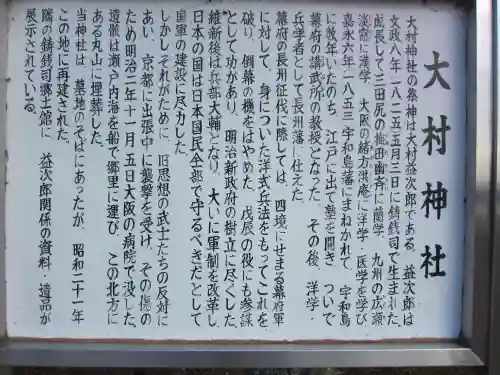 大村神社
大村神社の祭神は大村益次郎である。益次郎は
文政八年(一八二五)五月三日に鋳銭司で生まれた。
成長して三田尻の梅田幽斉に蘭学、九州の広瀬
淡窓に漢学、大阪の緒方洪庵に洋学・医学を学び
嘉永六年(一八五三)宇和島藩にまねかれて、宇和島
に数年いたのち、江戸に出て塾を開き、ついで
幕府の講武所の教授となった。その後、洋学・
兵学者として長州藩に仕えた。
幕府の長州征伐に際しては、四境にせまる幕府軍
に対して、身についた洋式兵法をもってこれを
破り、倒幕の機をはやめた。戊辰の役にも参謀
として功があり、明治新政府の樹立に尽くした。
維新後は兵部大輔となり、大いに軍制を改革し、
日本の国は日本国民全部で守るべきだとして
国軍の建設に尽力した。
しかしそれがために、旧思想の武士たちの反対に
あい、京都に出張中に襲撃を受け、その傷の
ため明治二年十一月五日大阪の病院で没した。
遺骸は瀬戸内海を船で郷里に運び、この北方に
ある丸山に埋葬した。
当神社は、墓地のそばにあったが、昭和二十一年
この地に再建された。
隣の鋳銭司郷土館に、益次郎関係の資料・遺品が
展示されている。